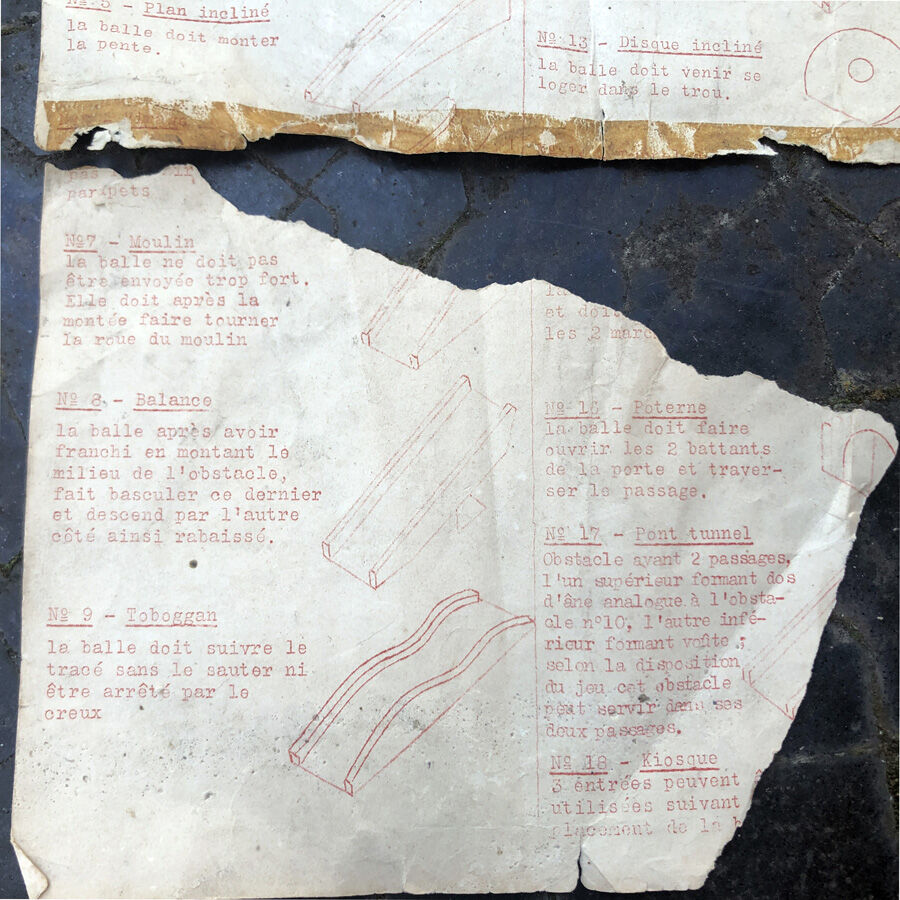 Nº 5 - Plan incliné
la balle doit monter
la pente.
Nº 13 - Disque incliné
la balle doit venir se
loger dans le trou.
pas
parapets
Nº7 - Moulin
la balle ne doit pas
être envoyée trop fort.
Elle doit après la
montée faire tourner
la roue du moulin
Nº 8 - Balance
la balle après avoir
franchi en montant le
milieu de l'obstacle,
fait basculer ce dernier
et descend par l'autre
côté ainsi rabaissé.
Nº 9 - Toboggan
la balle doit suivre le
tracé sans le sauter ni
être arrêté par le
creux
la
et doit
les 2 marc
Nº 16 - Poterne
la balle doit faire
ouvrir les 2 battants
de la porte et traver-
ser le passage.
Nº 17 - Pont tunnel
Obstacle ayant 2 passages,
l'un supérieur formant dos
d'âne analogue à l'obsta-
cle nº10, l'autre infé-
rieur formant voûte ;
selon la disposition
du jeu cet obstacle
peut servir dans ses
deux passages.
Nº 18 - Kiosque
3 entrées peuvent ê
utilisées suivant
placement de la b